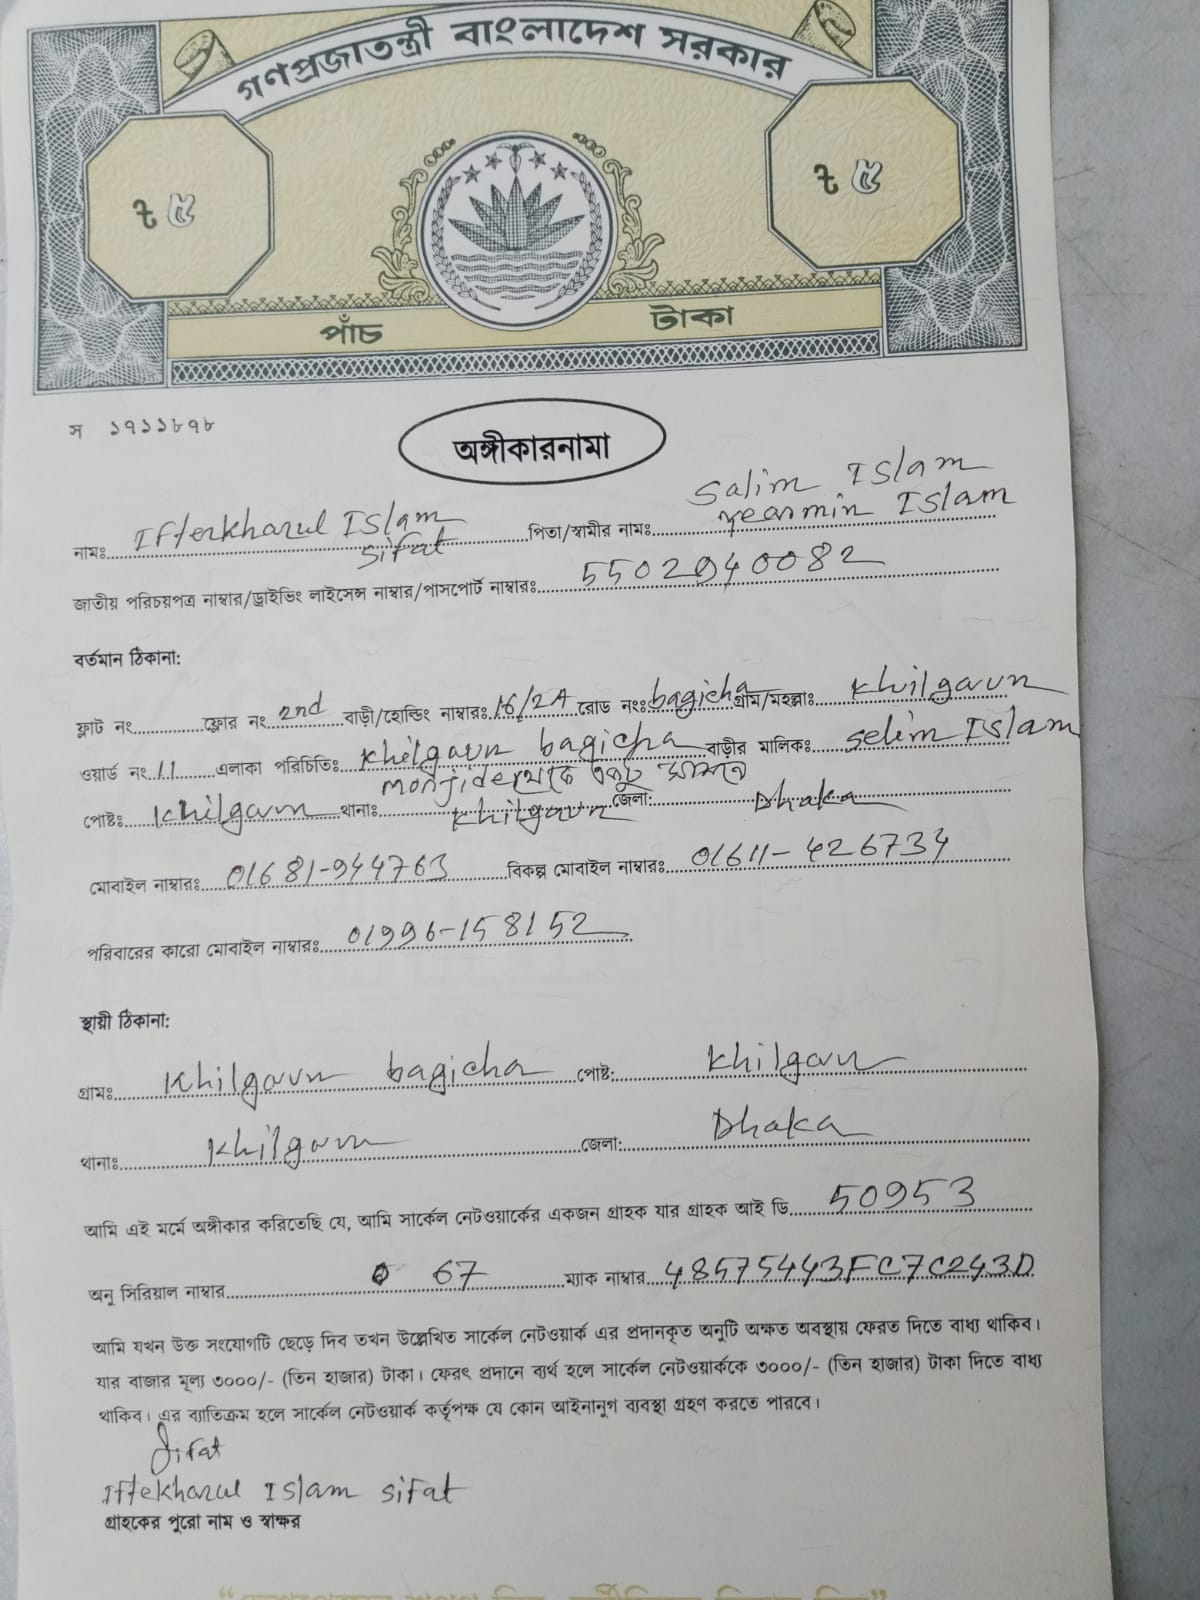 গণপ্রজাতন্ত্রী বাংলাদেশ সরকার
৳ ৫ ৳ ৫
পাঁচ টাকা
স ১৭১১৮৭৮
অঙ্গীকারনামা
Salim Islam
নামঃ Ifterkharul Islam পিতা/স্বামীর নামঃ Yearmin Islam
Sifat
জাতীয় পরিচয়পত্র নাম্বার/ড্রাইভিং লাইসেন্স নাম্বার/পাসপোর্ট নাম্বারঃ 5502940082
বর্তমান ঠিকানা:
ফ্লাট নং ফ্লোর নং 2nd বাড়ী/হোল্ডিং নাম্বারঃ 16/2A রোড নংঃ bagicha গ্রাম/মহল্লাঃ Khilgaun
ওয়ার্ড নং 11 এলাকা পরিচিতিঃ Khilgaun bagicha বাড়ীর মালিকঃ Selim Islam
monjid থেকে একটু সামনে
পোষ্টঃ Khilgaun থানাঃ Khilgaun জেলা: Dhaka
মোবাইল নাম্বারঃ 01681-944763 বিকল্প মোবাইল নাম্বারঃ 01611-426734
পরিবারের কারো মোবাইল নাম্বারঃ 01996-158152
স্থায়ী ঠিকানা:
গ্রামঃ Khilgaun bagicha পোষ্ট: Khilgaun
থানাঃ Khilgaun জেলা: Dhaka
আমি এই মর্মে অঙ্গীকার করিতেছি যে, আমি সার্কেল নেটওয়ার্কের একজন গ্রাহক যার গ্রাহক আই ডি 50953
অনু সিরিয়াল নাম্বার 67 ম্যাক নাম্বার 48575443FC7C243D
আমি যখন উক্ত সংযোগটি ছেড়ে দিব তখন উল্লেখিত সার্কেল নেটওয়ার্ক এর প্রদানকৃত অনুটি অক্ষত অবস্থায় ফেরত দিতে বাধ্য থাকিব।
যার বাজার মূল্য ৩০০০/- (তিন হাজার) টাকা। ফেরৎ প্রদানে ব্যর্থ হলে সার্কেল নেটওয়ার্ককে ৩০০০/- (তিন হাজার) টাকা দিতে বাধ্য
থাকিব। এর ব্যাতিক্রম হলে সার্কেল নেটওয়ার্ক কর্তৃপক্ষ যে কোন আইনানুগ ব্যবস্থা গ্রহণ করতে পারবে।
Sifat
Iftekharul Islam Sifat
গ্রাহকের পুরো নাম ও স্বাক্ষর